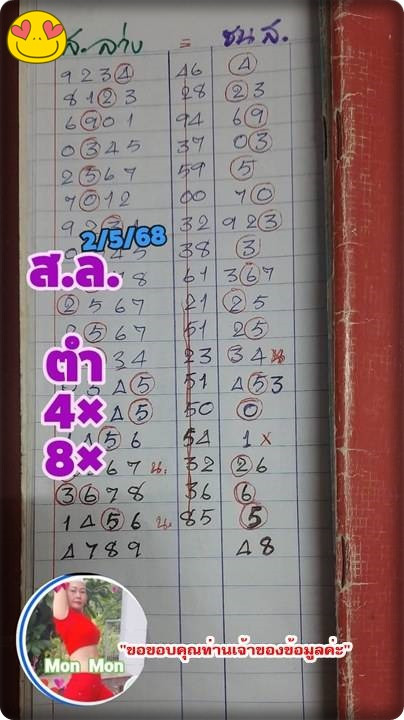 ส.ล่าง = ชน ส.
9234 46 4
8123 28 23
6901 94 69
0345 37 03
2567 59 5
7012 00 70
32 923
2/5/68
38 3
ส.ล. 8 61 367
2567 21 25
2567 51 25
ตำ 34 23 34 น
45 51 453
4x 45 50 0
56 54 1 x
8x 67 น. 32 26
3678 36 6
1456 น. 85 5
4789 48
Mon Mon
"ขอขอบคุณท่านเจ้าของข้อมูลค่ะ"